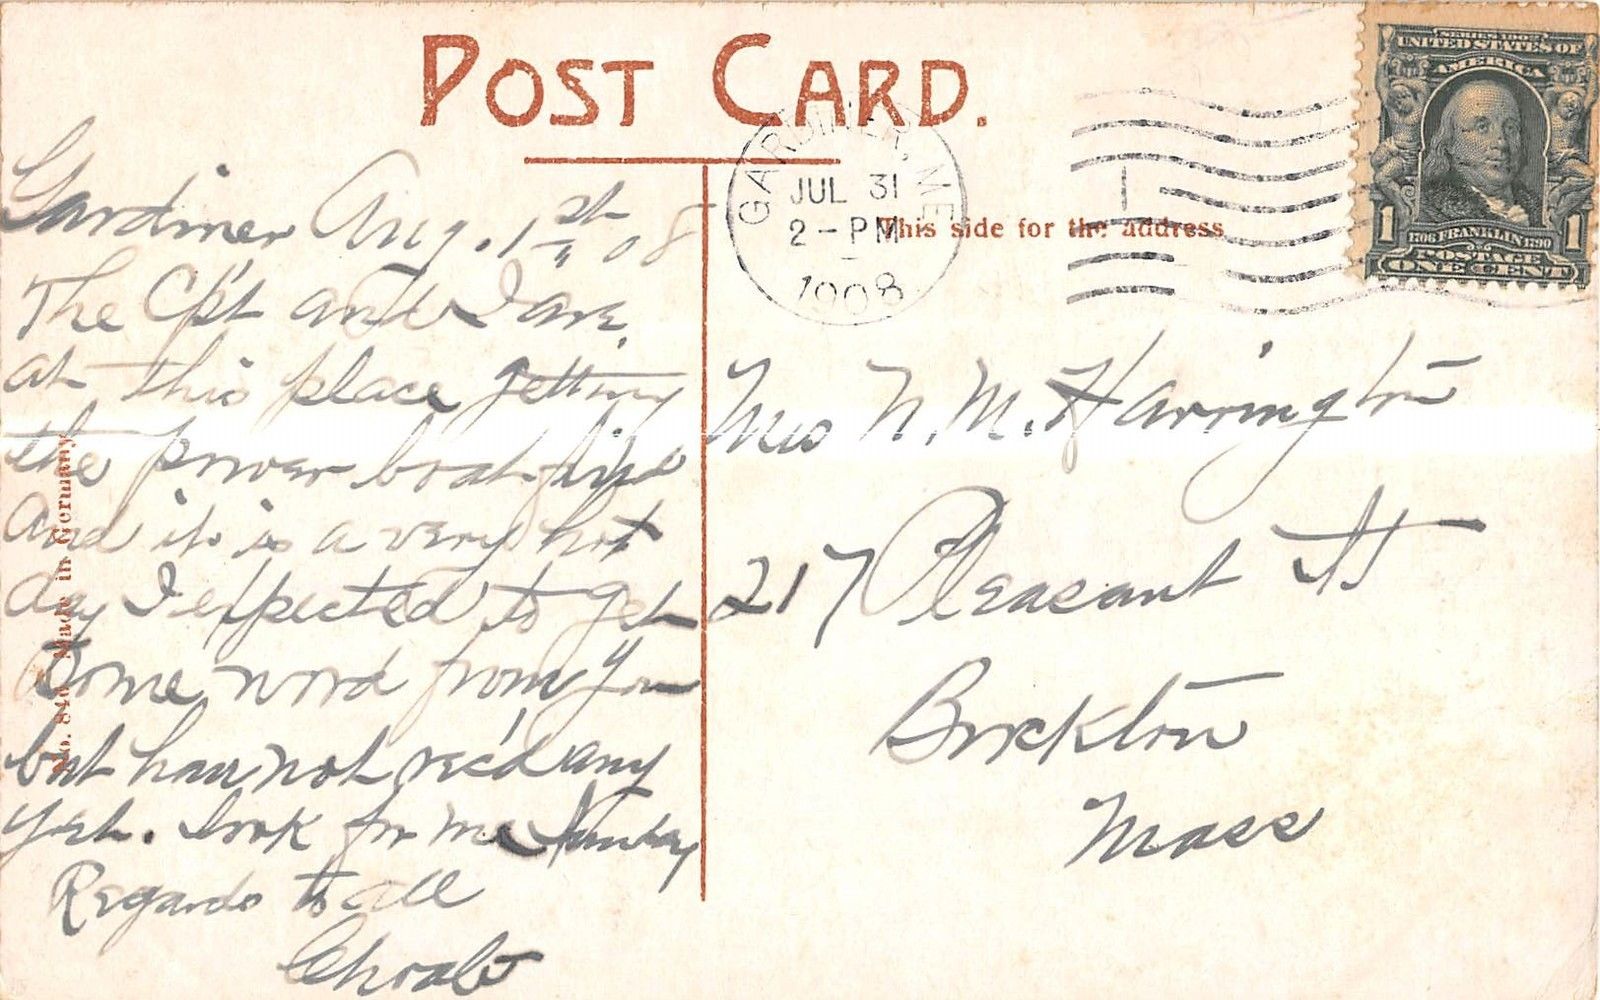 POST CARD.
GARDINER, ME
JUL 31
2 - PM
1908
This side for the address
SERIES 1902
UNITED STATES OF
AMERICA
1 1706 FRANKLIN 1790 1
POSTAGE
ONE CENT
Gardiner Aug. 1st 08
The Cpt and I are
at this place getting
the power boat fixed
and it is a very hot
day I expected to get
some word from you
but have not rec'd any
yet. Look for me Sunday
Regards to all
Mrs N. M. Harrington
217 Pleasant St
Brockton
Mass
Made in Germany